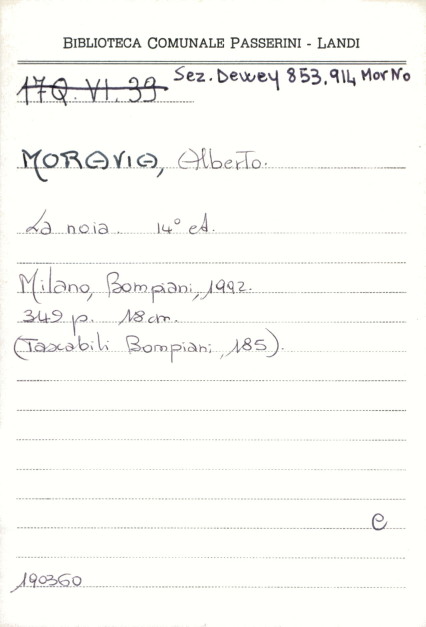 BIBLIOTECA COMUNALE PASSERINI - LANDI
17Q. VI. 39 Sez. Dewey 853.914 Mor No
MORAVIA, Alberto.
La noia. 14° ed.
Milano, Bompiani, 1992.
349 p. 18 cm.
(Tascabili Bompiani, 185).
e
190360